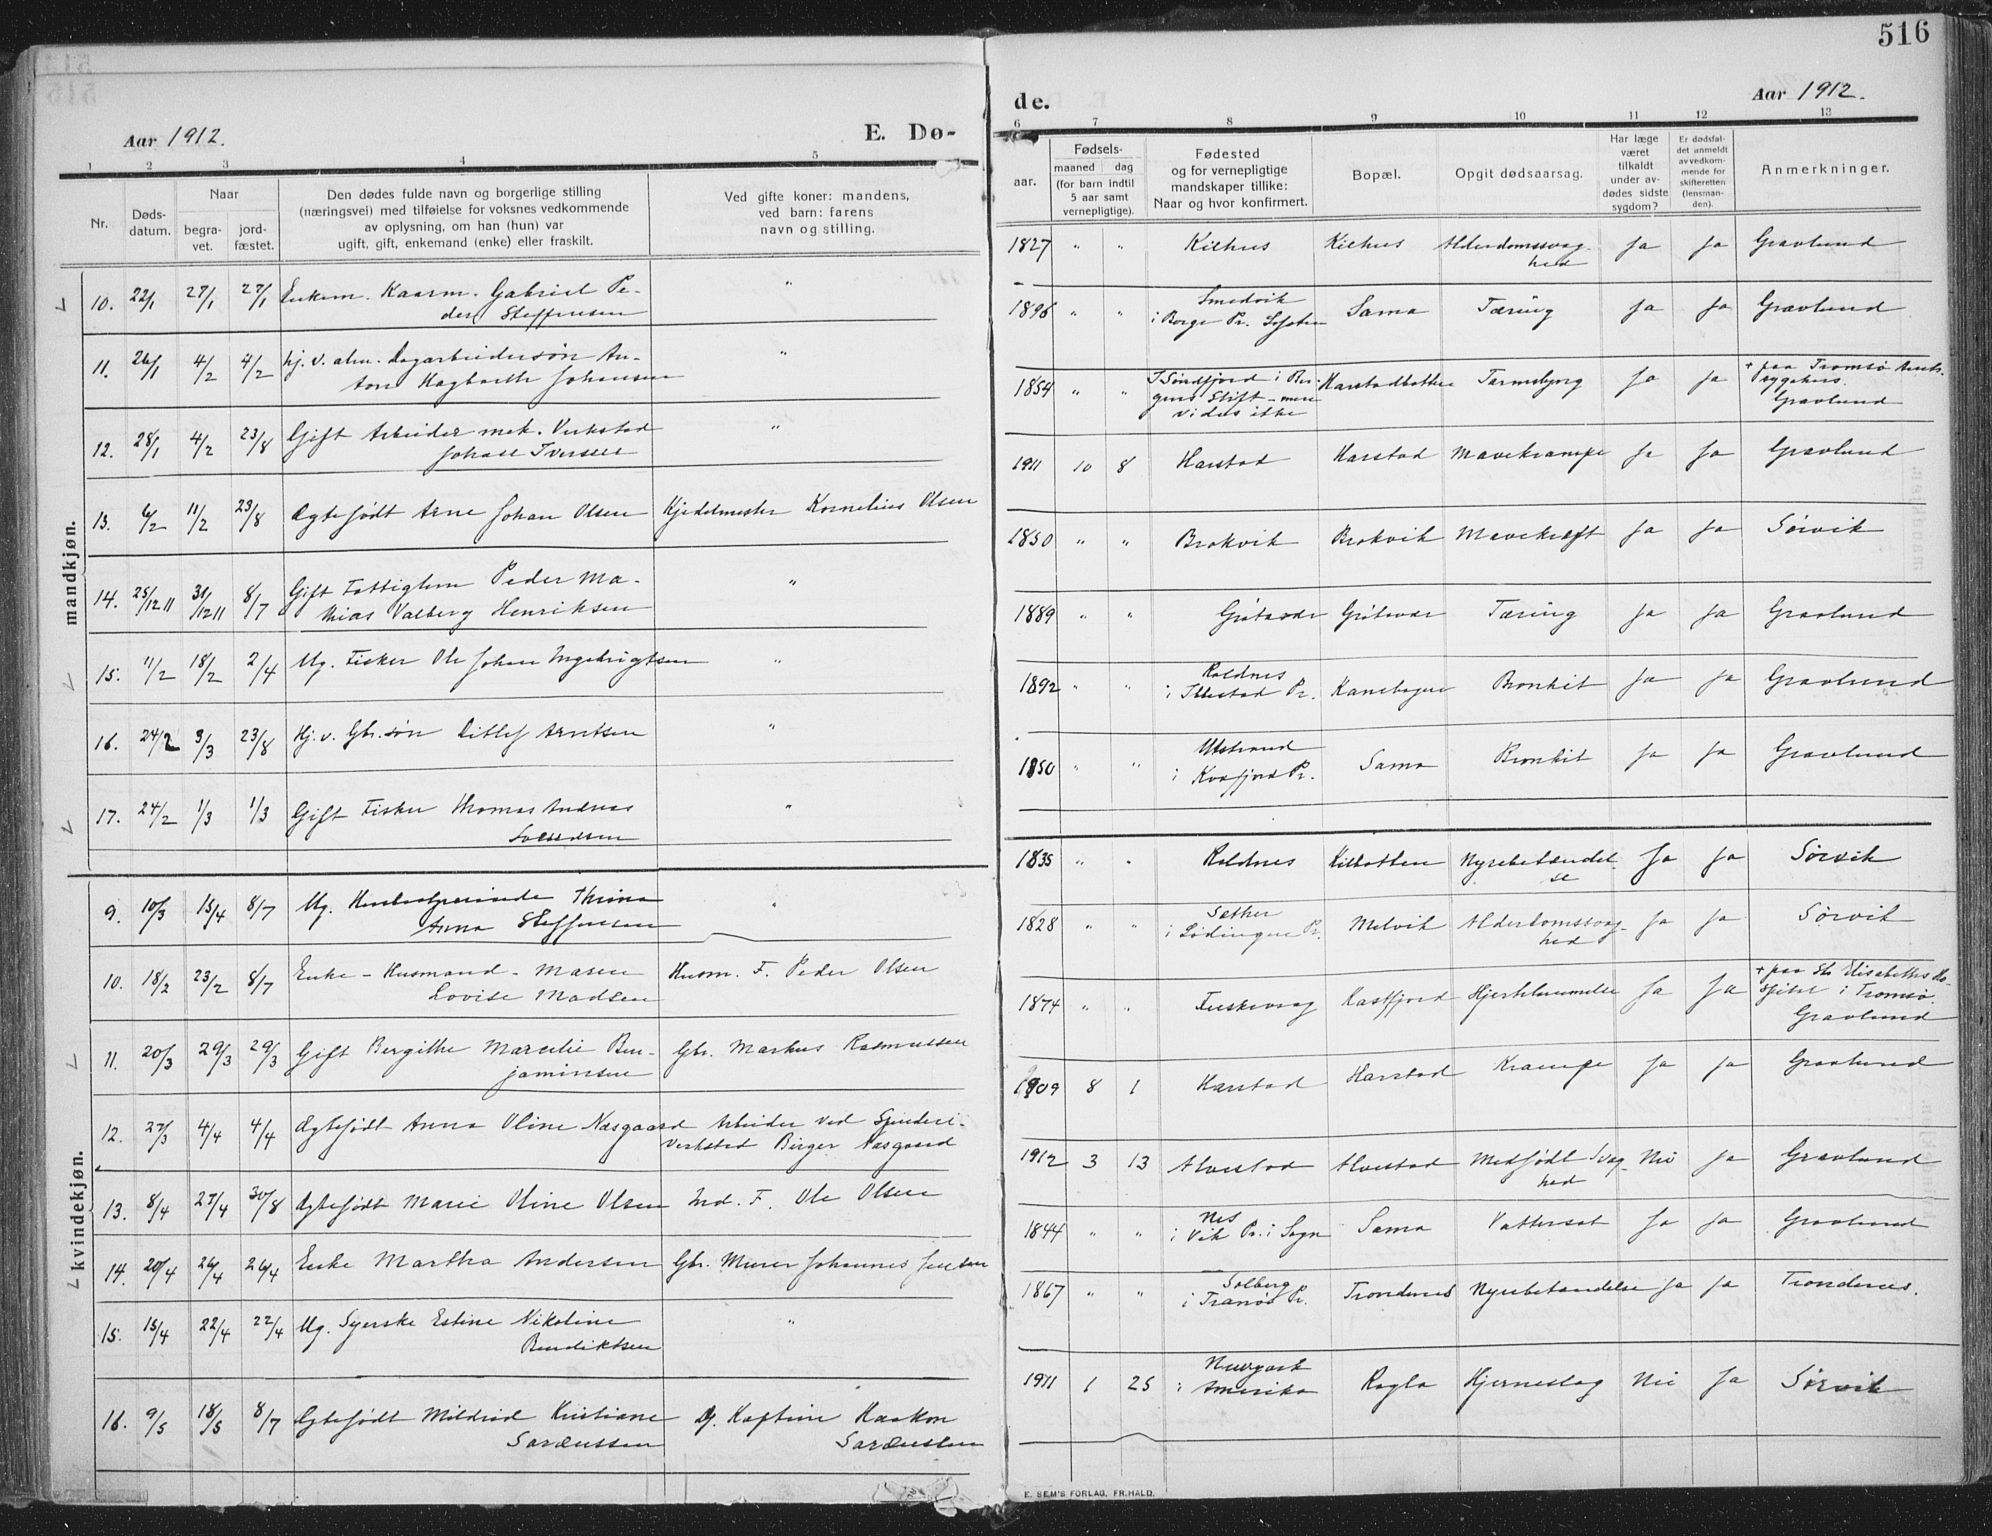 516
Aar 1912.
E. Dø-
de.
Aar 1912.
1 2 3 4 5
6 7 8 9 10 11 12 13
Nr.
Døds-
datum.
Naar
begra-
vet.
jord-
fæstet.
Den dødes fulde navn og borgerlige stilling
(næringsvei) med tilføielse for voksnes vedkommende
av oplysning, om han (hun) var
ugift, gift, enkemand (enke) eller fraskilt.
Ved gifte koner: mandens,
ved barn: farens
navn og stilling.
aar.
Fødsels-
maaned dag
(for barn indtil
5 aar samt
vernepligtige).
Fødested
og for vernepligtige
mandskaper tillike:
Naar og hvor konfirmert.
Bopæl.
Opgit dødsaarsag.
Har læge
været
tilkaldt
under av-
dødes sidste
sygdom?
Er dødsfal-
det anmeldt
av vedkom-
mende for
skifteretten
(lensman-
den).
Anmerkninger.
mandkjøn.
10. 22/1 27/1 27/1 Enkem. Kaarm. Gabriel Pe-
der Steffensen "
1827 " " Kilhus Kilhus Alderdomssvag-
hed Ja Ja Gravlund
11. 26/1 4/2 4/2 hj. v. alm. Dagarbeidersøn An-
ton Hagbarth Johansen "
1896 " " Smedvik
i Borge Pr. Lofoten Sama Tæring Ja Ja Gravlund
12. 28/1 4/2 23/8 Gift Arbeider mek. Verksted
Johan Iversen "
1854 " " I Søndfjord i Ber-
gens Stift - mere
vides ikke Harstadbotten Tarmslyng Ja Ja + paa Tromsø
sygehus.
Gravlund
13. 6/2 11/2 23/8 Ægtefødt Arne Johan Olsen Kjedelmester Kornelius Olsen
1911 10 8 Harstad Harstad Mavekrampe Ja Ja Gravlund
14. 25/12 11 31/12 11 8/7 Gift Fattiglem Peder Ma-
thias Valberg Henriksen "
1850 " " Brokvik Brokvik Mavekræft Ja Ja Sørvik
15. 11/2 18/2 2/4 Ug. Fisker Ole Johan Ingebrigtsen "
1889 " " Grøtavær Grøtavær Tæring Ja Ja Gravlund
16. 24/2 3/3 23/8 Hj. v. Gbr. søn Ditlef Arntsen "
1892 " " Roldnes
i Ibbestad Pr. Kanebogen Bronkit Ja Ja Gravlund
17. 24/2 1/3 1/3 Gift Fisker Thomas Andreas
Svendsen "
1850 " " Utstrand
i Kvæfjord Pr. Sama Bronkit Ja Ja Gravlund
kvindekjøn.
9. 10/3 15/4 8/7 Ug. Thrina
Anna Steffensen "
1835 " " Roldnes Kilbotten Nyrebetændel-
se Ja Ja Sørvik
10. 18/2 23/2 8/7 Enke - Husmand - Maren
Lovise Madsen Husm. F. Peder Olsen
1828 " " Sæther
i Lødingen Pr. Melvik Alderdomssvag-
hed Ja Ja Sørvik
11. 20/3 29/3 29/3 Gift Bergithe Marcelie Ben-
jaminsen Gbr. Markus Rasmussen
1874 " " Fuskevaag Kastfjord Hjerte Ja Ja + paa St. Elisabeths Ho-
spital i Tromsø.
Gravlund
12. 27/3 4/4 4/4 Ægtefødt Anna Oline Næsgaard Arbeider ved
verksted Birger Næsgaard
1909 8 1 Harstad Harstad Krampe Ja Ja Gravlund
13. 8/4 27/4 30/8 Ægtefødt Marie Oline Olsen Ind. F. Ole Olsen
1912 3 13 Alvestad Alvestad Medfødt Svag-
hed Nei Ja Gravlund
14. 20/4 26/4 26/4 Enke Martha Andersen Gbr. Murer Johannes Jensen
1844 " " Nes
i Vik Pr. i Sogn Sama Vattersot Ja Ja Gravlund
15. 15/4 22/4 22/4 Ug. Syerske Estine Nikoline
Bendiktsen "
1867 " " Solberg
i Tranøs Pr. Trondenes Nyrebetændelse Ja Ja Trondenes.
16. 9/5 18/5 8/7 Ægtefødt Mildrid Kristiane
Sørenssen Kaptein Haakon
Sørenssen
1911 1 25 Newyork
i Amerika Rogla Hjerneslag Nei Ja Sørvik
E. SEM'S FORLAG, FR.HALD.